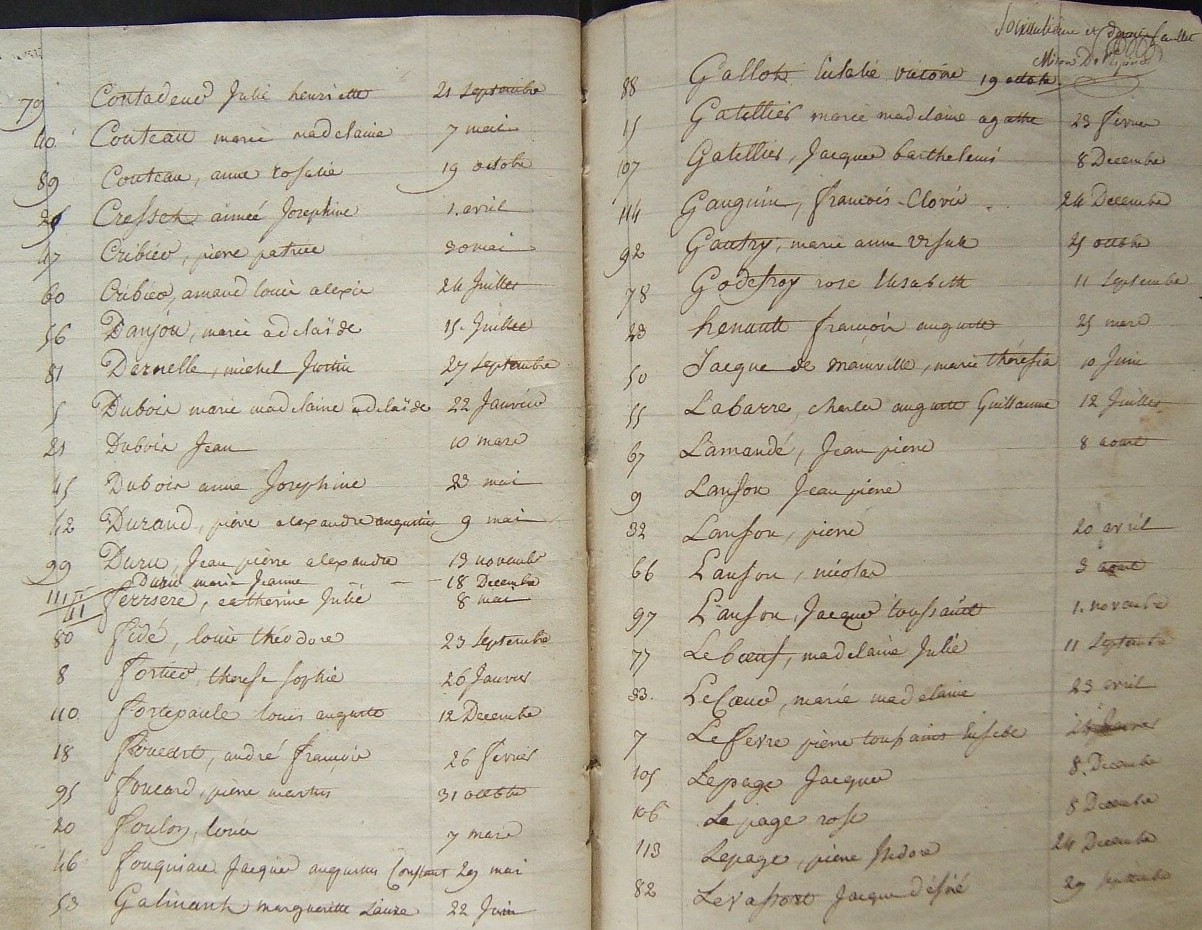 79 Contadeur Julie henriette 21 Septembre
40 Couteau marie madelaine 7 mai
89 Couteau, anne rosalie 19 octobre
29 Cresset aimeé Josephine 1. avril
47 Cribier, pierre patrice 30 mai
60 Cribier, amand louis alexis 24 Juillet
56 Danjou, marie adelaïde 15. Juillet
81 Dernelle, michel Justin 27 Septembre
5 Dubois marie madelaine adelaïde 22 Janvier
21 Dubois Jean 10 mars
45 Dubois anne Josephine 23 mai
42 Durand, pierre alexandre augustin 9 mai
99 Duru, Jean pierre alexandre 13 novembre
111 Duru marie Jeanne 18 Decembre
41 ferrsere, catherine Julie 8 mai
80 fidé, louis théodore 23 Septembre
8 fortier, therese sophie 26 Janvier
110 fortepaule louis auguste 12 Decembre
18 foucart, andré françois 26 fevrier
95 foucard, pierre martin 31 octobre
20 foulon, louis 7 mars
46 fouquiau Jacques augustin Constant 29 mai
53 Galinant margueritte Laure 22 Juin
88 Gallot Eulalie victoire 19 octobre
15 Gatellier marie madelaine agathe 23 fevrier
107 Gatellier, Jacques barthelemi 8 Decembre
114 Gauguin, francois Clovis 24 Decembre
92 Gautry, marie anne Ursule 25 octobre
78 Godefroy rose Elisabeth 11 Septembre
28 henault françois auguste 25 mars
50 Jacque de mainville, marie thérésia 10 Juin
55 Labarre, charles auguste Guillaume 12 Juillet
67 Lamandé, Jean pierre 8 aout
9 Lanson Jean pierre
32 Lanson, pierre 20 avril
66 Lanson, nicolas 3 aout
97 Lanson, Jacques toussaint 1. novembre
77 Lebœuf, madelaine Julie 11 Septembre
33. LeCœur, marie madelaine 23 avril
7 Lefevre pierre toussaint Eusebe
105 Lepage Jacques 8. Decembre
106 Le page rose 8 Decembre
113 Lepage, pierre Isidore 24 Decembre
82 Levassort Jacque désiré 29 septembre